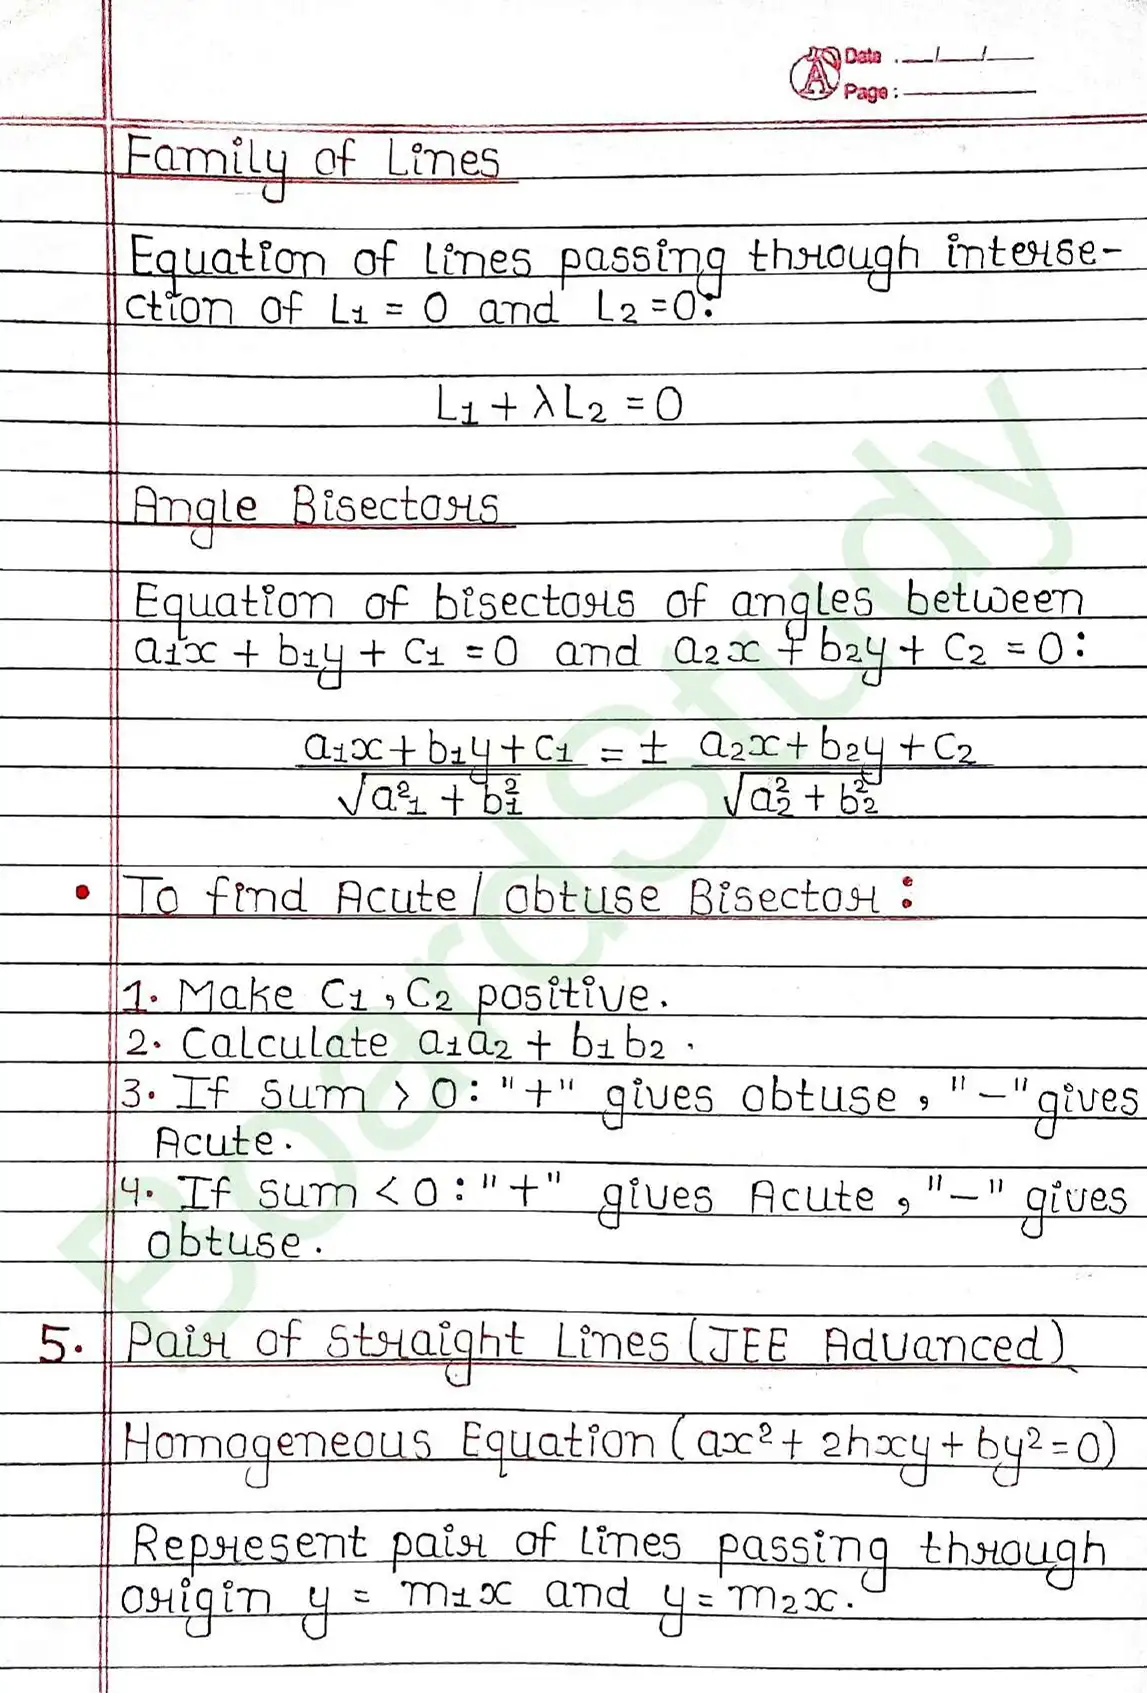 Date : __/__/__
Page : ______
Family of Lines
Equation of lines passing through interse-
ction of L₁ = 0 and L₂ = 0:
L₁ + λL₂ = 0
Angle Bisectors
Equation of bisectors of angles between
a₁x + b₁y + c₁ = 0 and a₂x + b₂y + c₂ = 0:
(a₁x + b₁y + c₁)/√(a₁² + b₁²) = ± (a₂x + b₂y + c₂)/√(a₂² + b₂²)
• To find Acute/obtuse Bisector:
1. Make C₁, C₂ positive.
2. Calculate a₁a₂ + b₁b₂.
3. If sum > 0: "+" gives obtuse, "−" gives
Acute.
4. If sum < 0: "+" gives Acute, "−" gives
obtuse.
5. Pair of Straight Lines (JEE Advanced)
Homogeneous Equation (ax² + 2hxy + by² = 0)
Represent pair of lines passing through
origin y = m₁x and y = m₂x.
BoardStudy